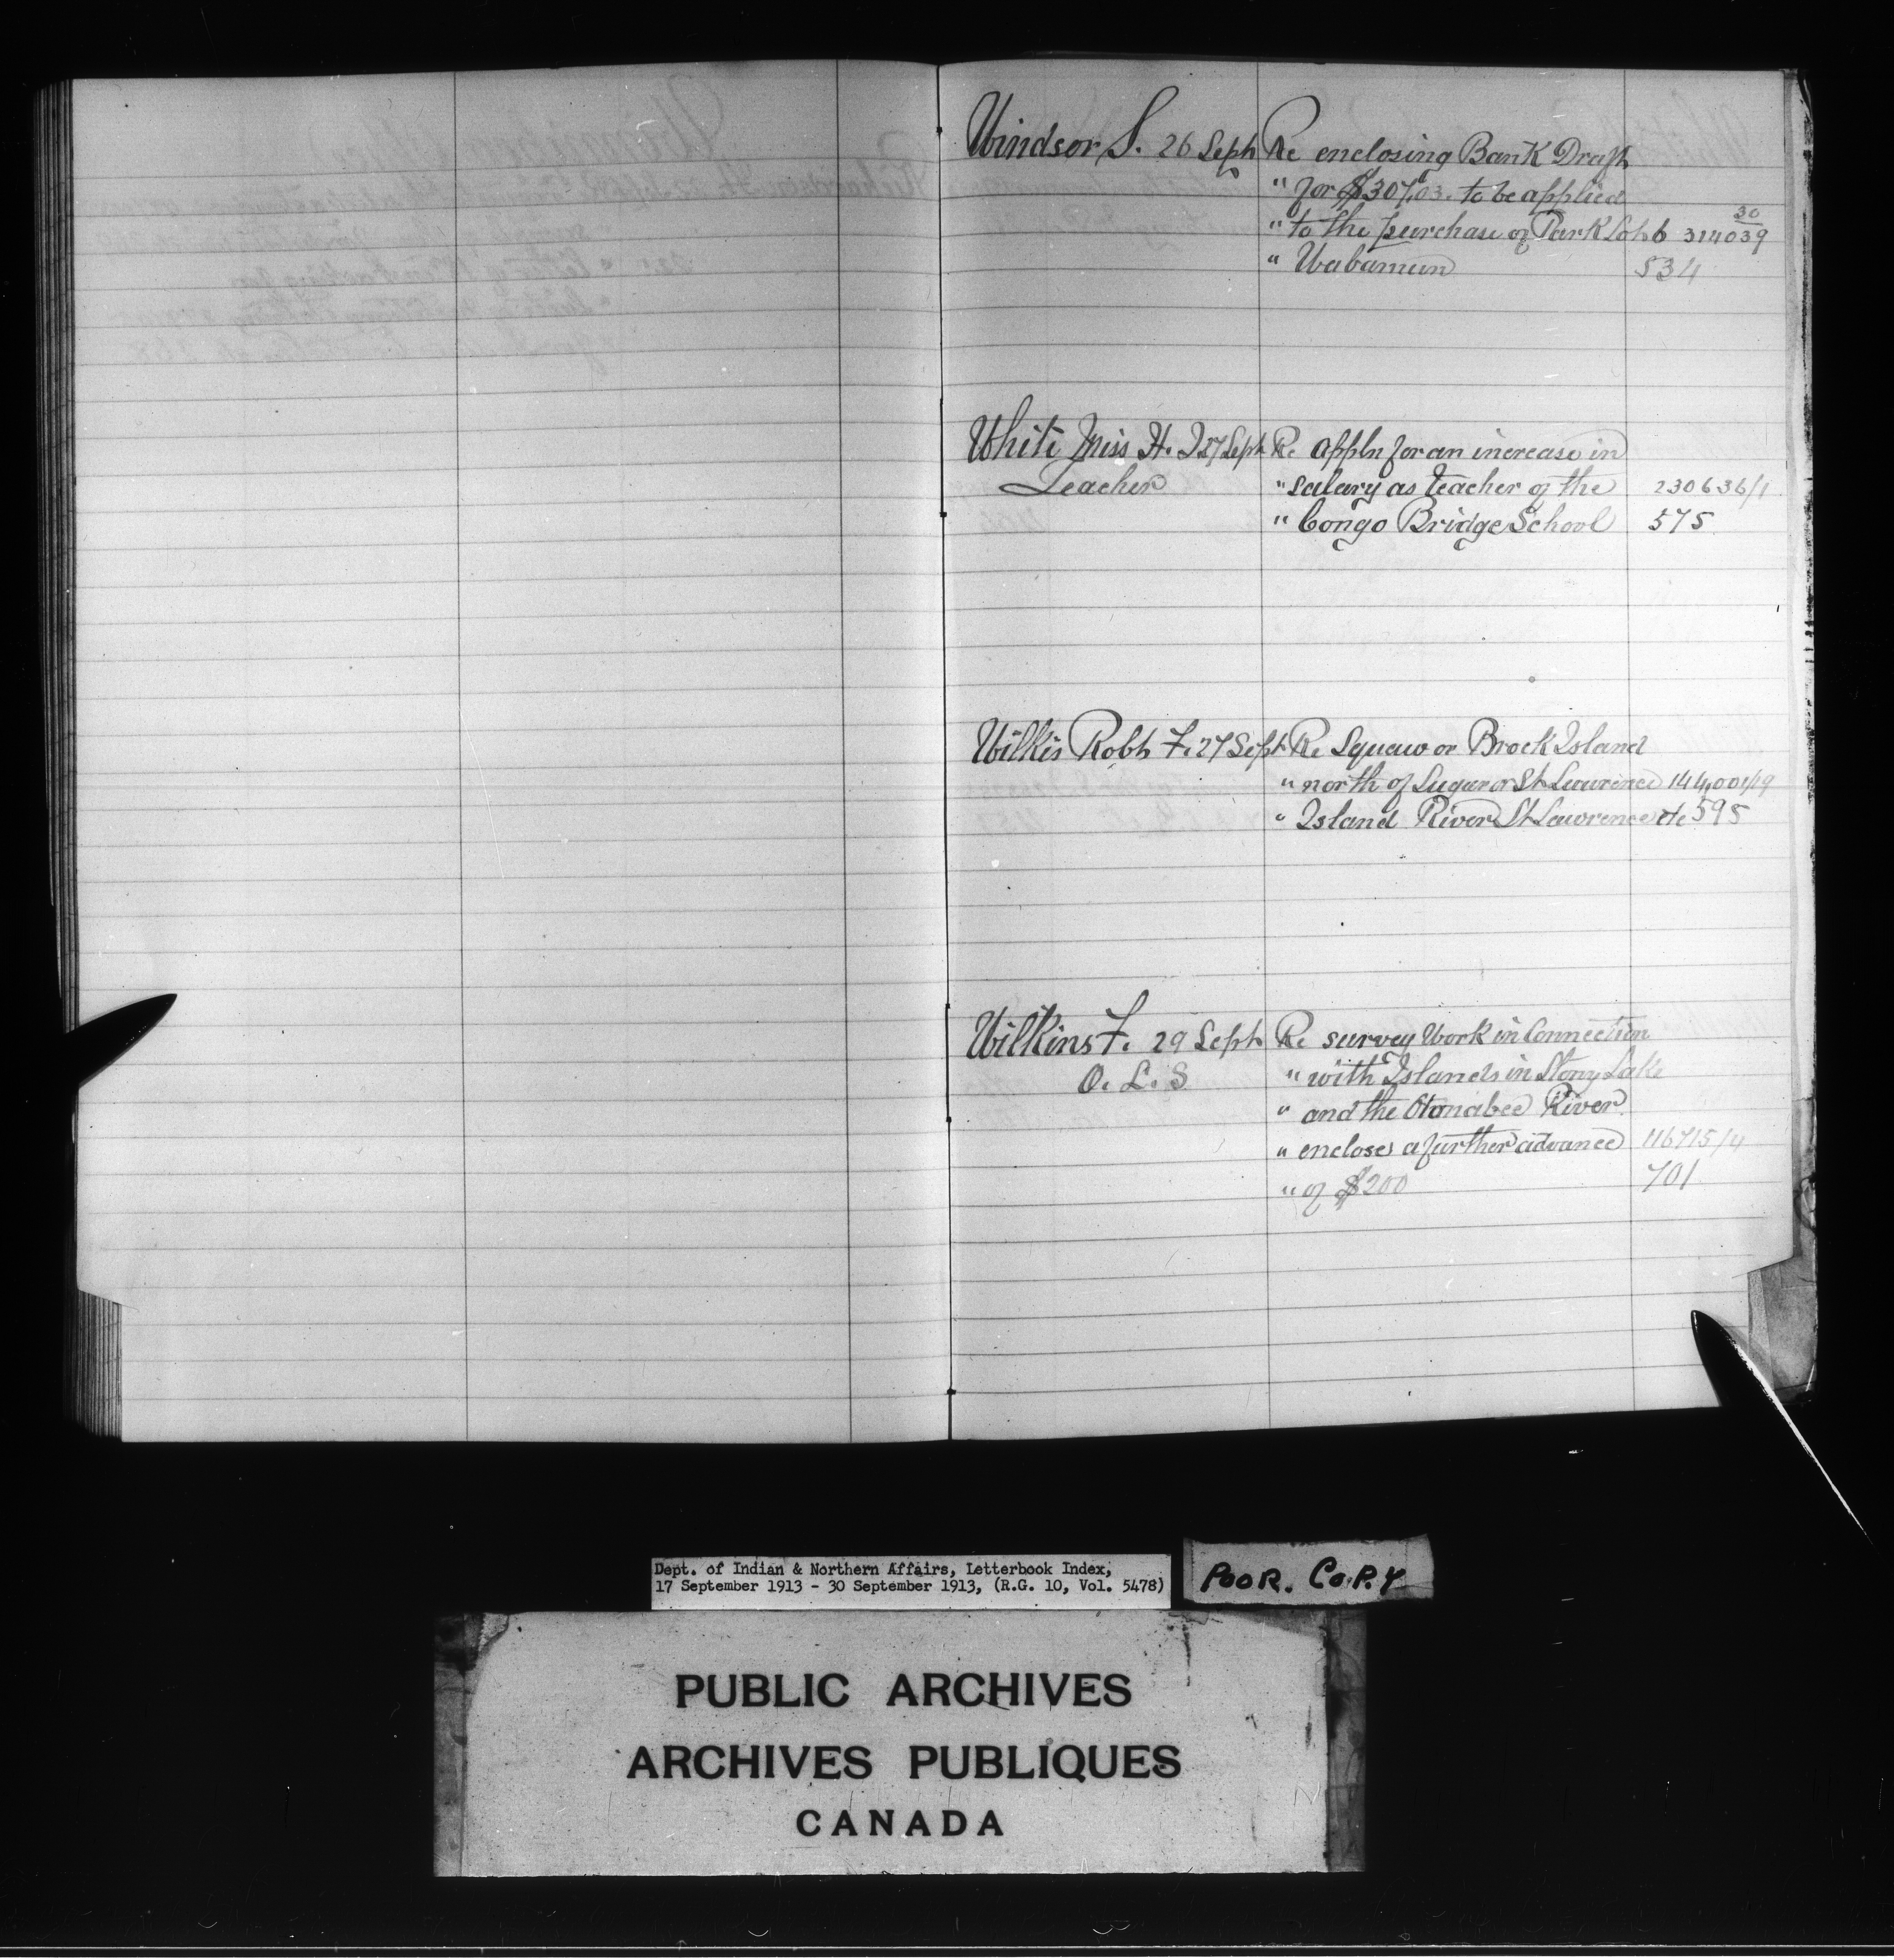 Windsor S. 26 Sept Re enclosing Bank Draft
" for $307.03. to be applied
" to the purchase of Park Lot 6 314039
30
" Wabamun 534
White Miss H. I 27 Sept Re Appln for an increase in
Teacher " salary as teacher of the 230636/1
" Congo Bridge School 575
Wilkis Robt F. 27 Sept Re Squaw or Brock Island
" north of Sugar or St Lawrence 144,001/19
" Island River St Lawrence etc 595
Wilkins F. 29 Sept Re survey work in Connection
O. L. S " with Islands in Stony Lake
" and the Otonabee River
" encloses a further advance 116715/4
" of $200 701
Dept. of Indian & Northern Affairs, Letterbook Index,
17 September 1913 - 30 September 1913, (R.G. 10, Vol. 5478)
POOR. COPY
PUBLIC ARCHIVES
ARCHIVES PUBLIQUES
CANADA